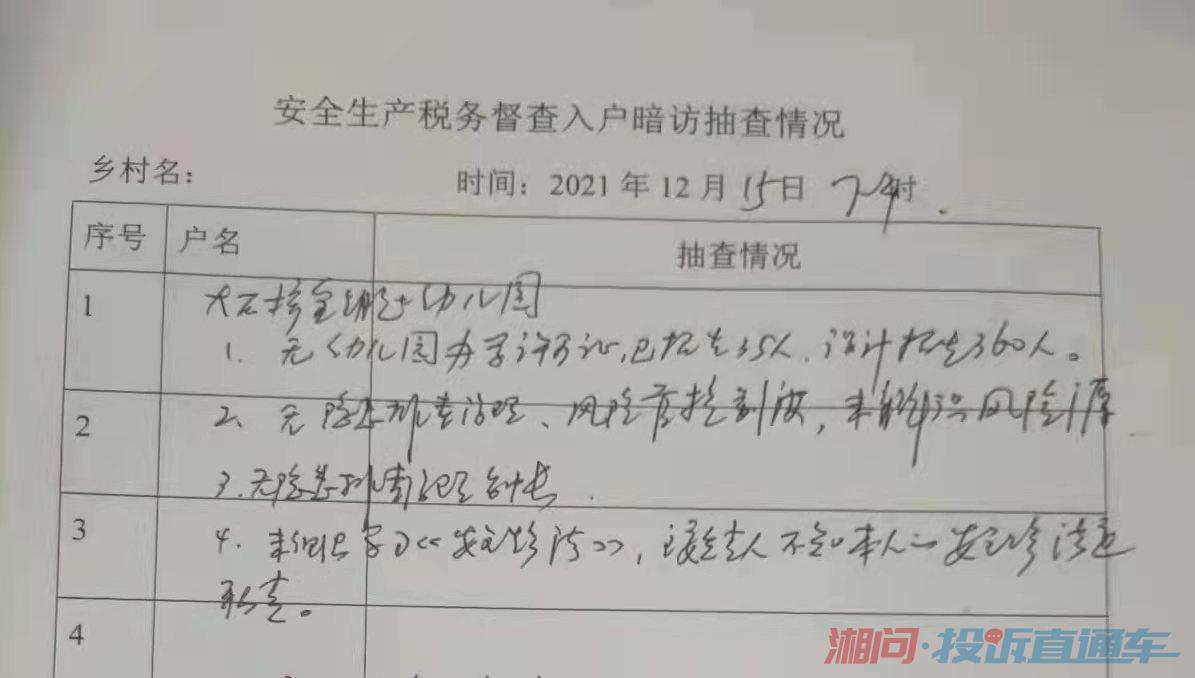 安全生产税务督查入户暗访抽查情况
乡村名：
时间：2021年12月15日 下午时.
序号 户名 抽查情况
1
幼儿园
1. 无幼儿园办学许可证,已招生35人,设计招生360人。
2
2、无隐患排查治理、风险管控制度,未辨识风险
3.无隐患排查治理台长.
3
4. 未组织学习《安全生产法》,负责人不知本人的安全生产法定
职责。
4
湘问·投诉直通车